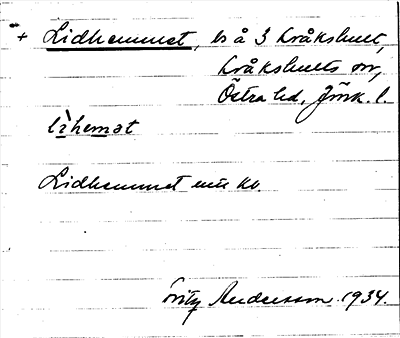 + Lidhemmet, ls å 3 Kråkshult,
Kråkshults sn,
Östra hd, Jönk. l.
lìhemət
Lidhemmet enl. kb.
Fritz Andersson 1934.